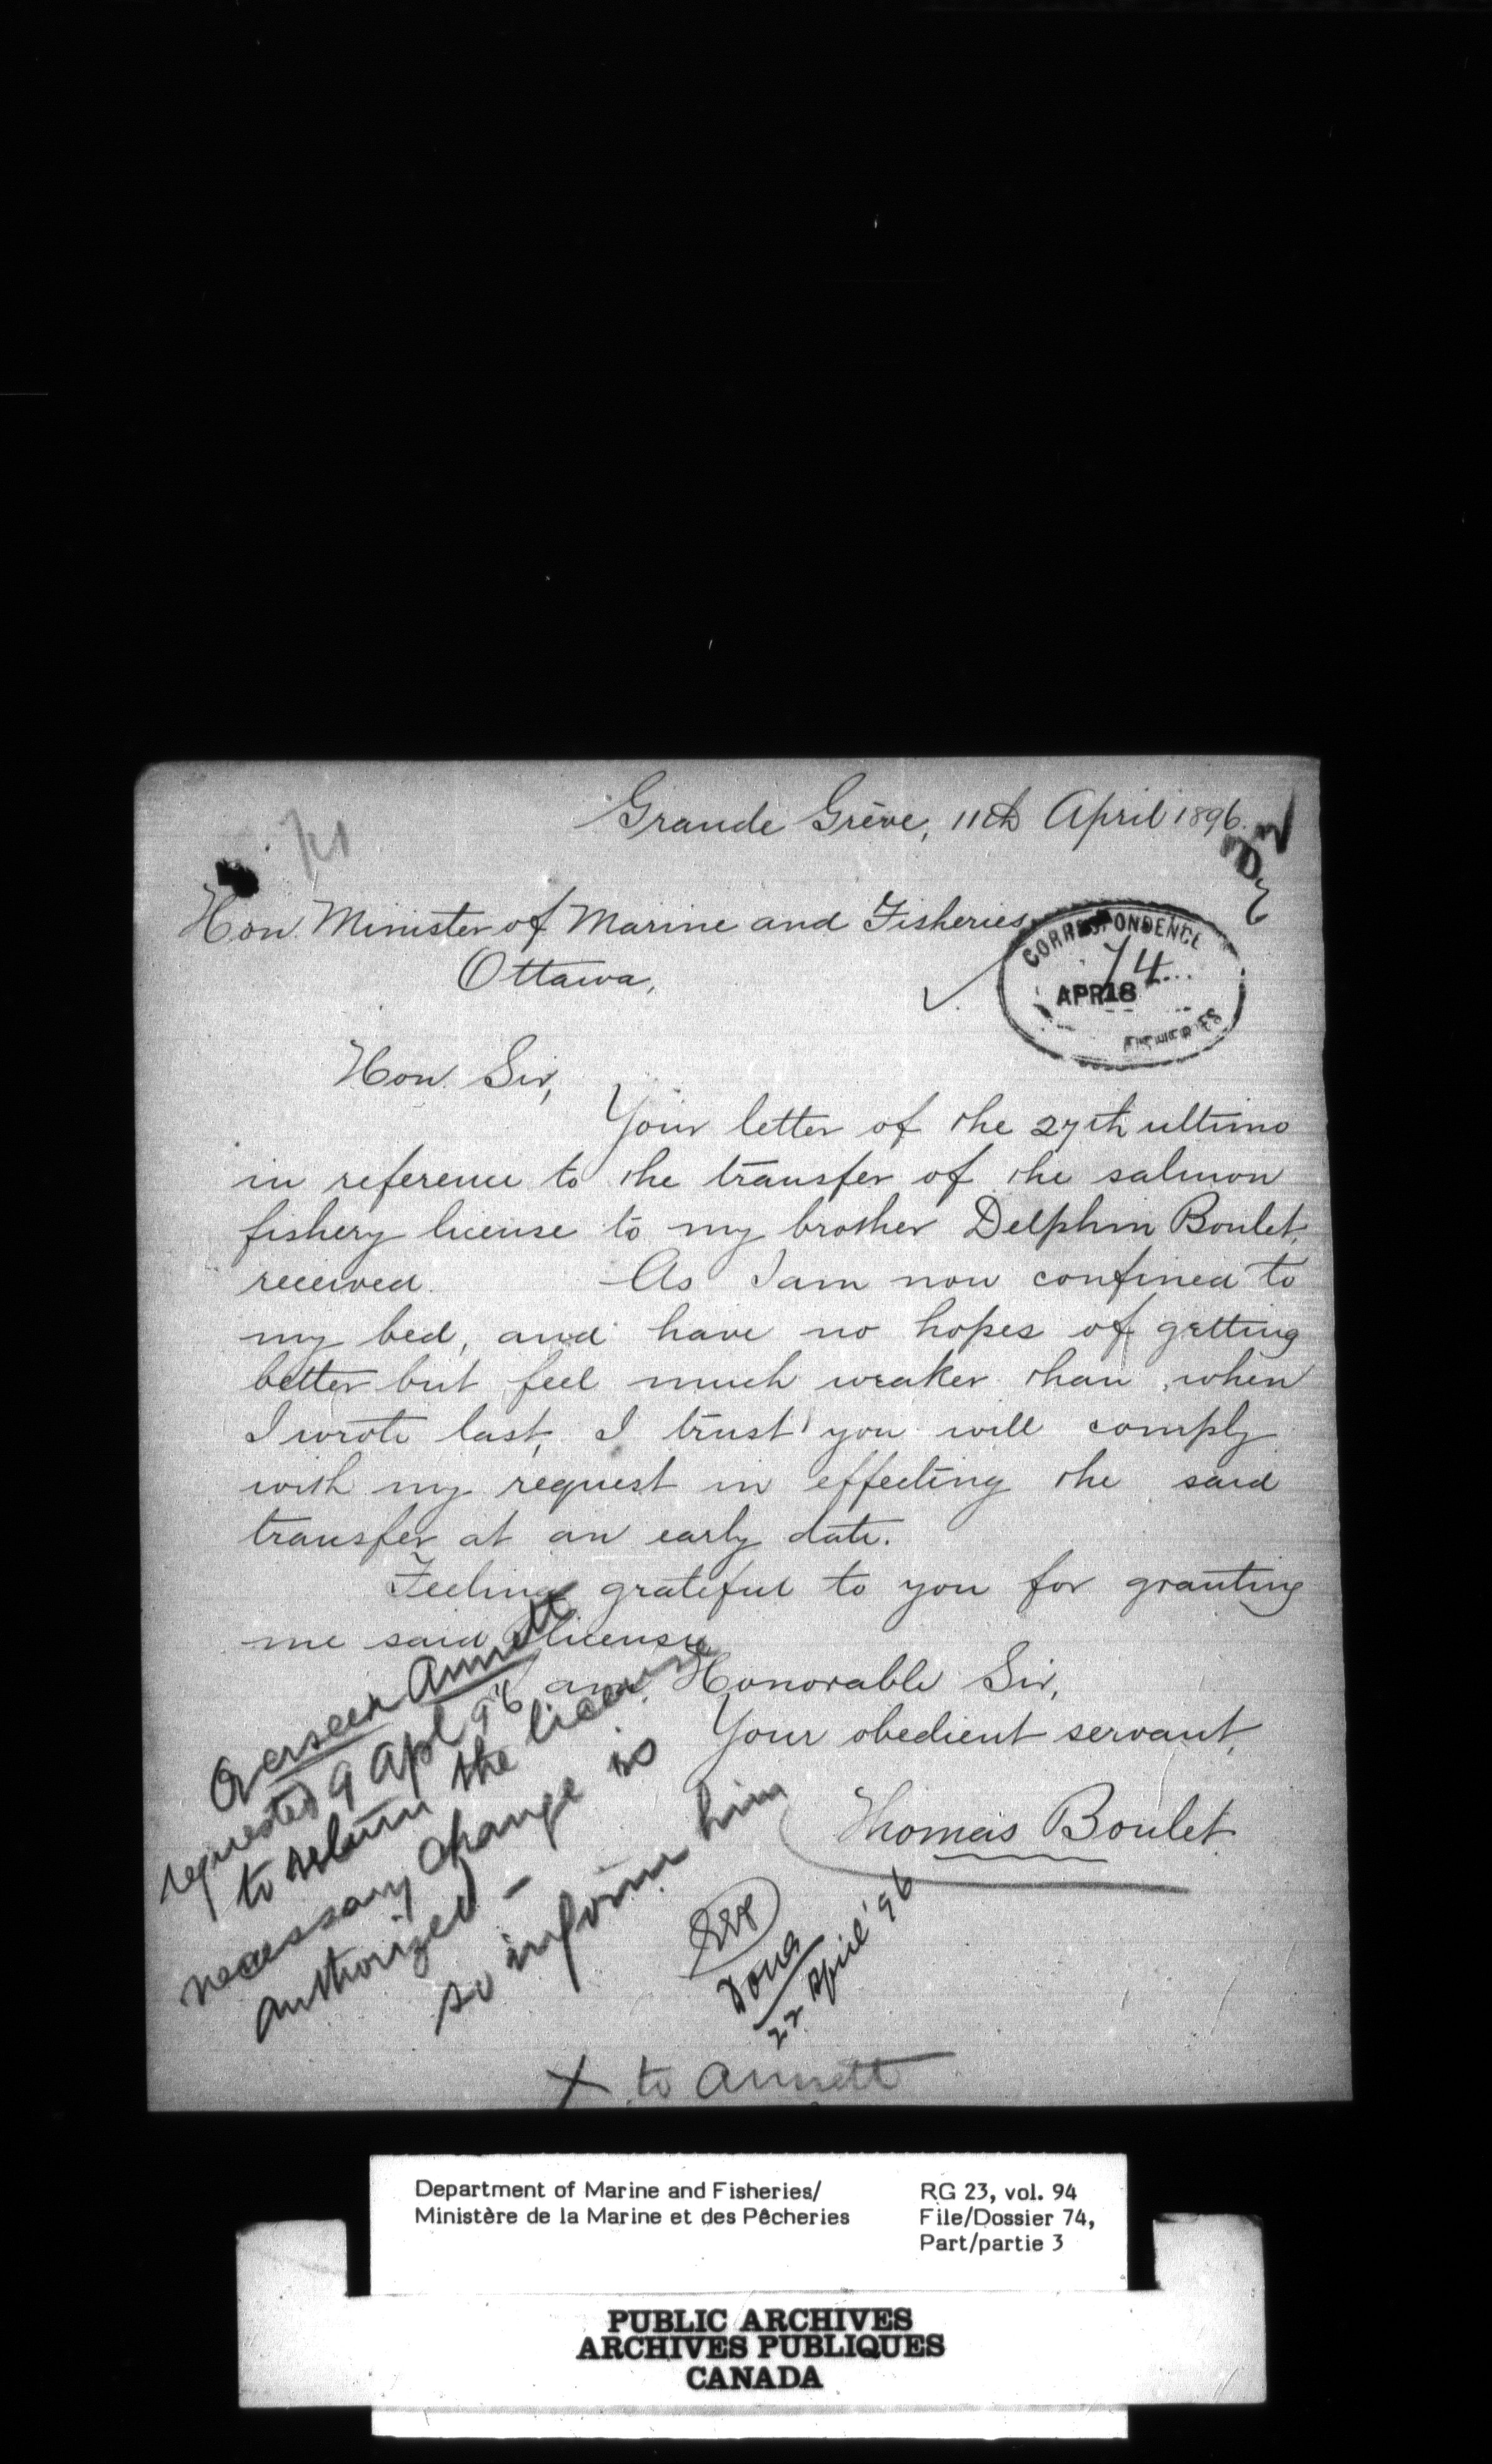 Grande Grève, 11th April 1896.
Hon. Minister of Marine and Fisheries
Ottawa,
CORRESPONDENCE
74
APR 18
FISHERIES
Hon. Sir,
Your letter of the 27th ultimo
in reference to the transfer of the salmon
fishery license to my brother Delphin Boulet,
received. As I am now confined to
my bed, and have no hopes of getting
better but feel much weaker than when
I wrote last, I trust you will comply
with my request in effecting the said
transfer at an early date.
Feeling grateful to you for granting
me said license
am Honorable Sir,
Your obedient servant,
Thomas Boulet
Overseer Annett
requested 9 Apl 96
to return the license
necessary change is
authorized –
so inform him
Done
22 April '96
X to Annett
Department of Marine and Fisheries/
Ministère de la Marine et des Pêcheries
RG 23, vol. 94
File/Dossier 74,
Part/partie 3
PUBLIC ARCHIVES
ARCHIVES PUBLIQUES
CANADA